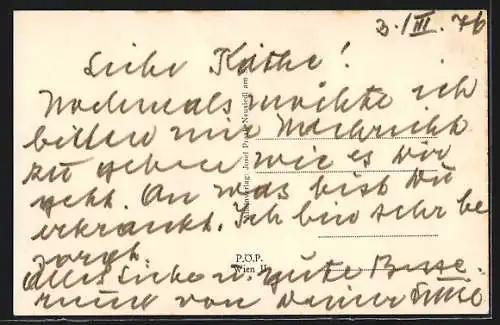 3./III. 76
Liebe Käthe!
Nochmals möchte ich
bitten mir Nachricht
zu geben wie es Dir
geht. An was bist Du
erkrankt. Ich bin sehr be
sorgt.
alles Liebe u. gute Besse
rung von Deiner
P.Ö.P.
Wien II
Josef Neusiedl am